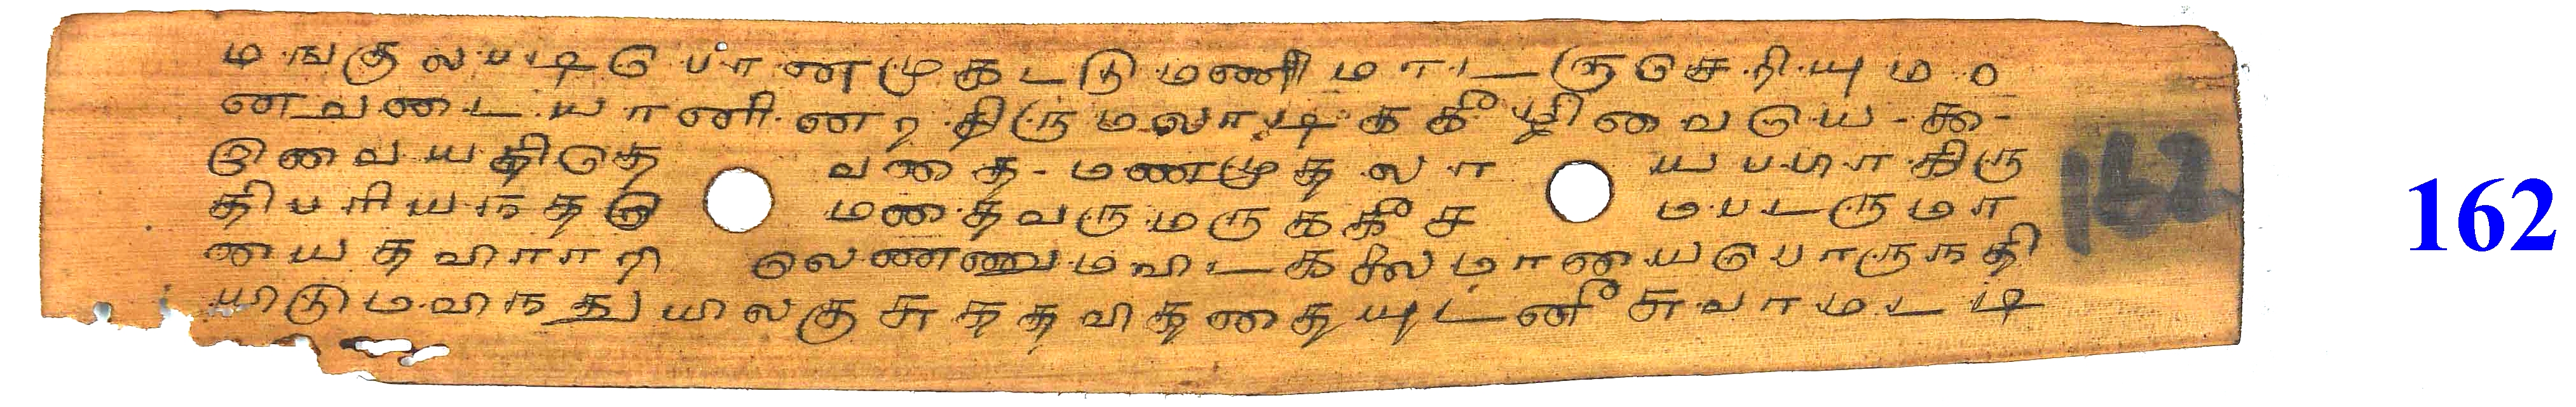 மஙகுலபடிபொனமுகடடுமணிமாடருசெறியும௦
னவடையானினறதிருமலாடிககீழிவையெ-க-
இவையதிதெ வணத-மணமுதலா யபபாகிரு
திபரியநதஇ மணதவருமருககீச மபடருமா
யைதவிராரி லெணணுமவிடகசிலமாயைபொருநதி
யிடுமவிநதுயிலகுசுததவிததையுடனீசுவரமடடி
162
162